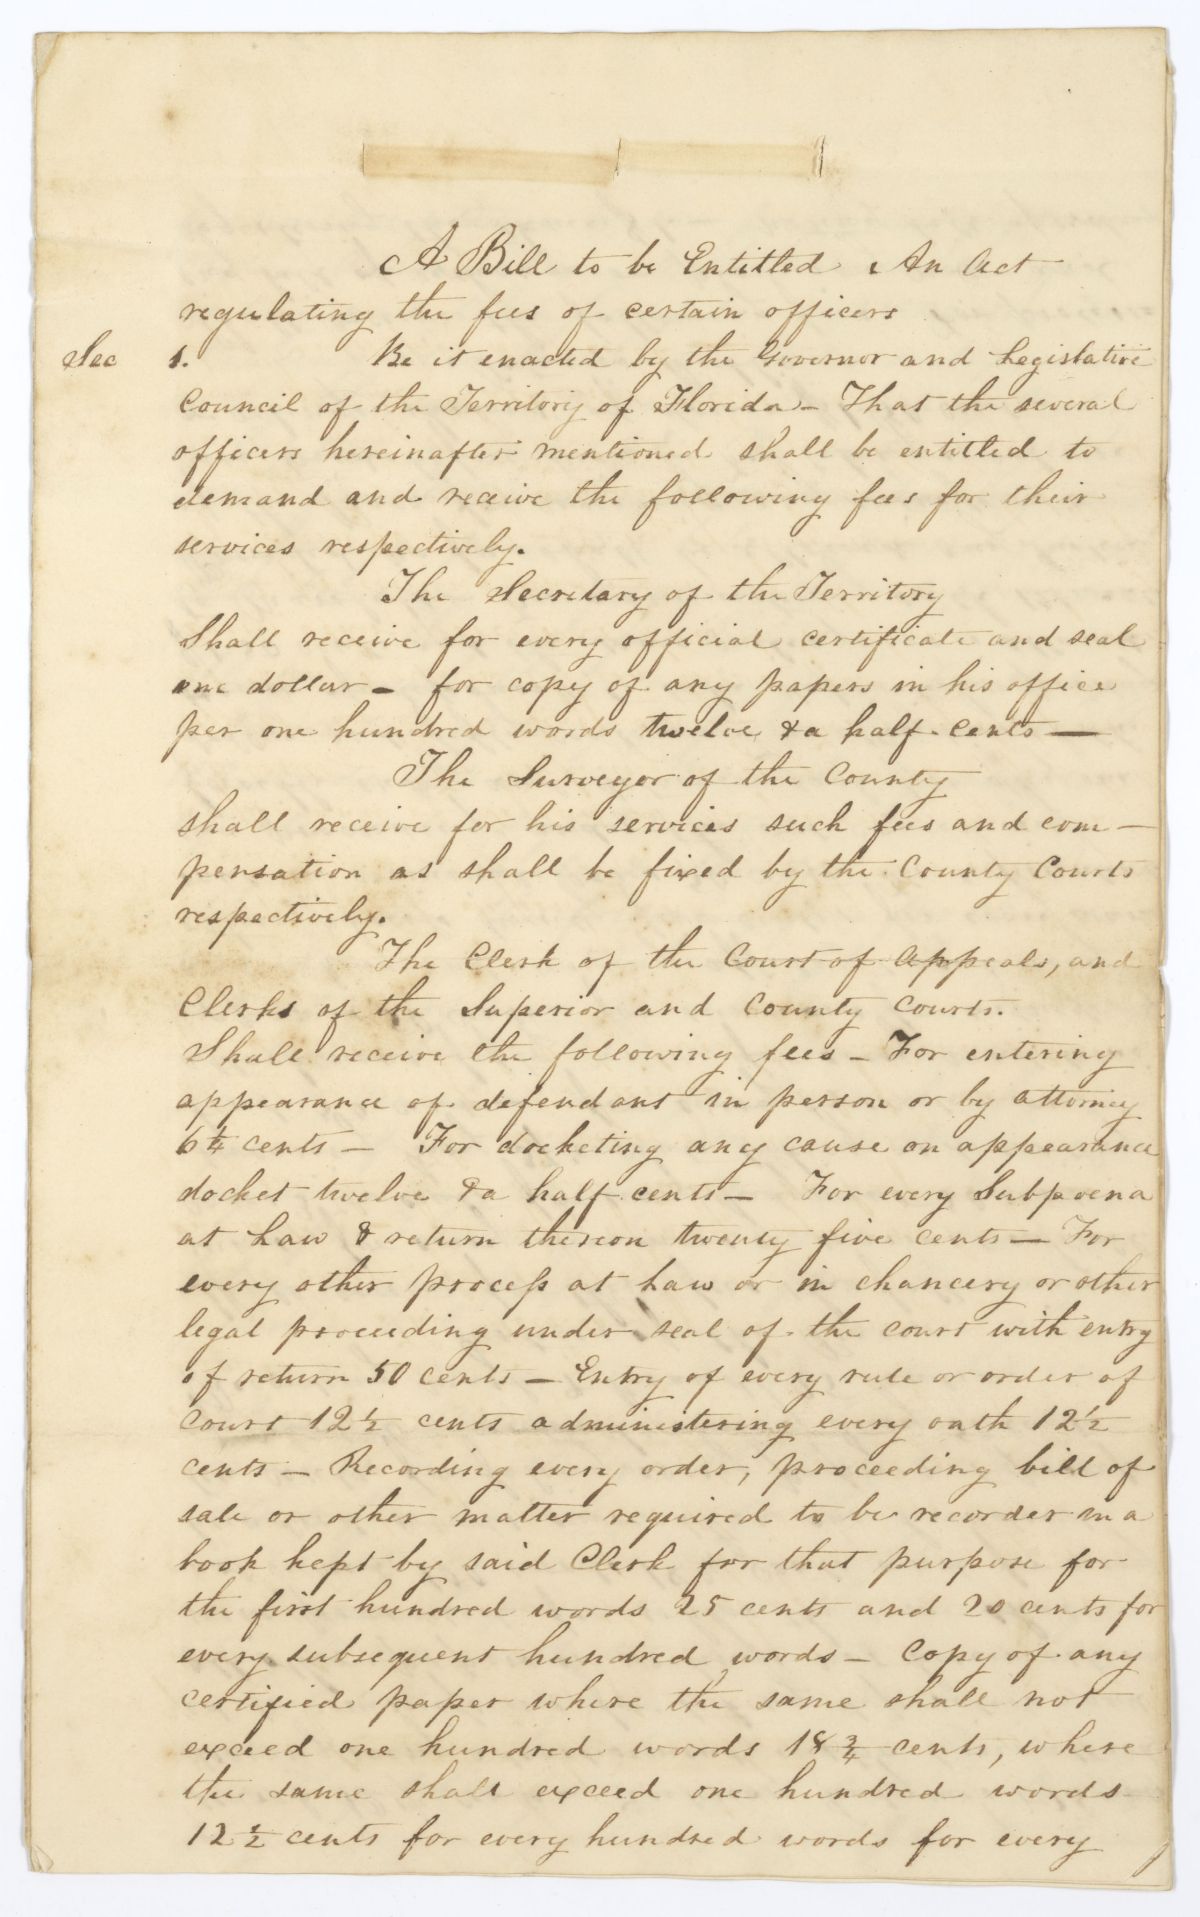 A Bill to be Entitled An Act
regulating the fees of certain officers
Sec 1. Be it enacted by the Governor and Legislative
Council of the Territory of Florida - That the several
officers hereinafter mentioned shall be entitled to
demand and receive the following fees for their
services respectively.
The Secretary of the Territory
Shall receive for every official certificate and seal
one dollar - for copy of any papers in his office
per one hundred words twelve & a half cents —
The Surveyor of the County
shall receive for his services such fees and com-
pensation as shall be fixed by the County Courts
respectively.
The Clerk of the Court of Appeals, and
Clerks of the Superior and County Courts.
Shall receive the following fees - For entering
appearance of defendant in person or by attorney
6¼ cents - For docketing any cause on appearance
docket twelve & a half cents - For every Subpoena
at Law & return thereon twenty five cents - For
every other process at Law or in chancery or other
legal proceeding under seal of the court with entry
of return 50 cents - Entry of every rule or order of
Court 12½ cents administering every oath 12½
cents - Recording every order, proceeding bill of
sale or other matter required to be recorder in a
book kept by said Clerk for that purpose for
the first hundred words 25 cents and 20 cents for
every subsequent hundred words - Copy of any
certified paper where the same shall not
exceed one hundred words 18¾ cents, where
the same shall exceed one hundred words
12½ cents for every hundred words for every